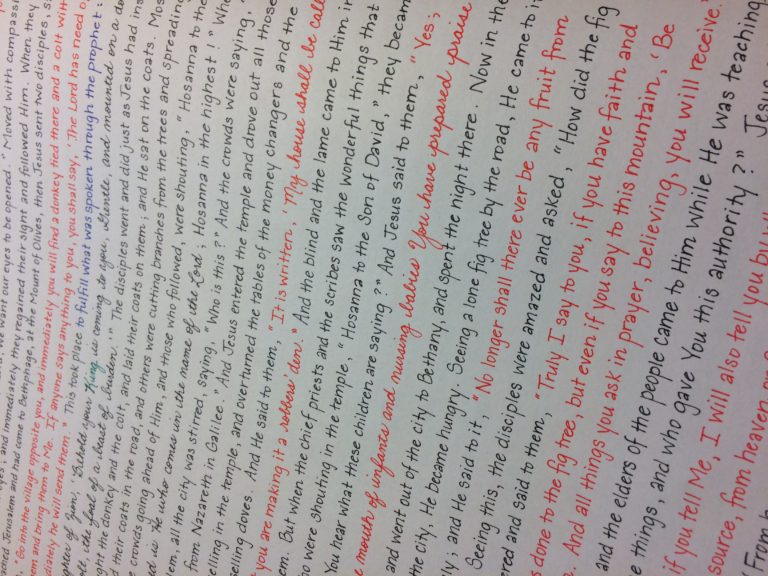 eyes; and immediately they regained their sight and followed Him. When they
we want our eyes to be opened." Moved with compassi
ached Jerusalem and had come to Bethphage, at the Mount of Olives, then Jesus sent two disciples, s
"Go into the village opposite you, and immediately you will find a donkey tied there and a colt with
em and bring them to Me. If anyone says anything to you, you shall say, 'The Lord has need o
diately he will send them." This took place to fulfill what was spoken through the prophet:
ghter of Zion, 'Behold your King is coming to you, Gentle, and mounted on a do
lt, the foal of a beast of burden.'" The disciples went and did just as Jesus had ins
ght the donkey and the colt, and laid their coats on them; and He sat on the coats. Mos
d their coats in the road, and others were cutting branches from the trees and spreading
e crowds going ahead of Him, and those who followed, were shouting, "Hosanna to the
ed is He who comes in the name of the Lord; Hosanna in the highest!" Whe
lem, all the city was stirred, saying, "Who is this?" And the crowds were saying,
from Nazareth in Galilee." And Jesus entered the temple and drove out all those
elling in the temple, and overturned the tables of the money changers and the
selling doves. And He said to them, "It is written, 'My house shall be call
you are making it a robbers' den." And the blind and the lame came to Him in
em. But when the chief priests and the scribes saw the wonderful things that
o were shouting in the temple, "Hosanna to the Son of David," they becam
You hear what these children are saying?" And Jesus said to them, "Yes;
e mouth of infants and nursing babies You have prepared praise
and went out of the city to Bethany, and spent the night there. Now in the
the city, He became hungry. Seeing a lone fig tree by the road, He came to i
ly; and He said to it, "No longer shall there ever be any fruit from
Seeing this, the disciples were amazed and asked, "How did the fig
ered and said to them, "Truly I say to you, if you have faith and
s done to the fig tree, but even if you say to this mountain, 'Be
. And all things you ask in prayer, believing, you will receive.
and the elders of the people came to Him while He was teaching
e things, and who gave You this authority?" Jesus
if you tell Me, I will also tell you by
source, from heaven or
From h